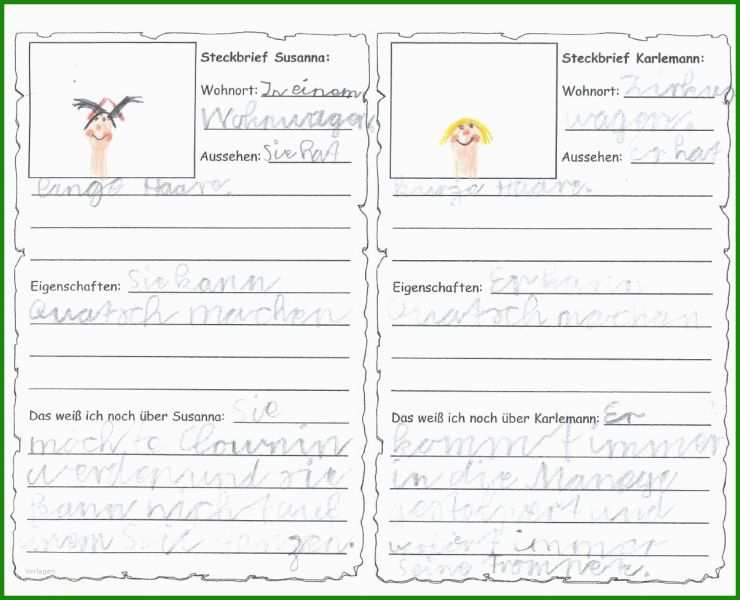 Steckbrief Susanna:
Wohnort: In einem
Wohnwagen.
Aussehen: Sie hat
lange Haare.
Eigenschaften: Sie kann
Quatsch machen
Das weiß ich noch über Susanna: Sie
möchte Clownin
werden und sie
kann nicht auf
Seil tanzen.
vorlagen
Steckbrief Karlemann:
Wohnort: Zirkus
wagen.
Aussehen: Er hat
kurze Haare.
Eigenschaften: Er kann
Quatsch machen
Das weiß ich noch über Karlemann: Er
kommt immer
in die Manege
gestolpert und
immer
seine Trompete.